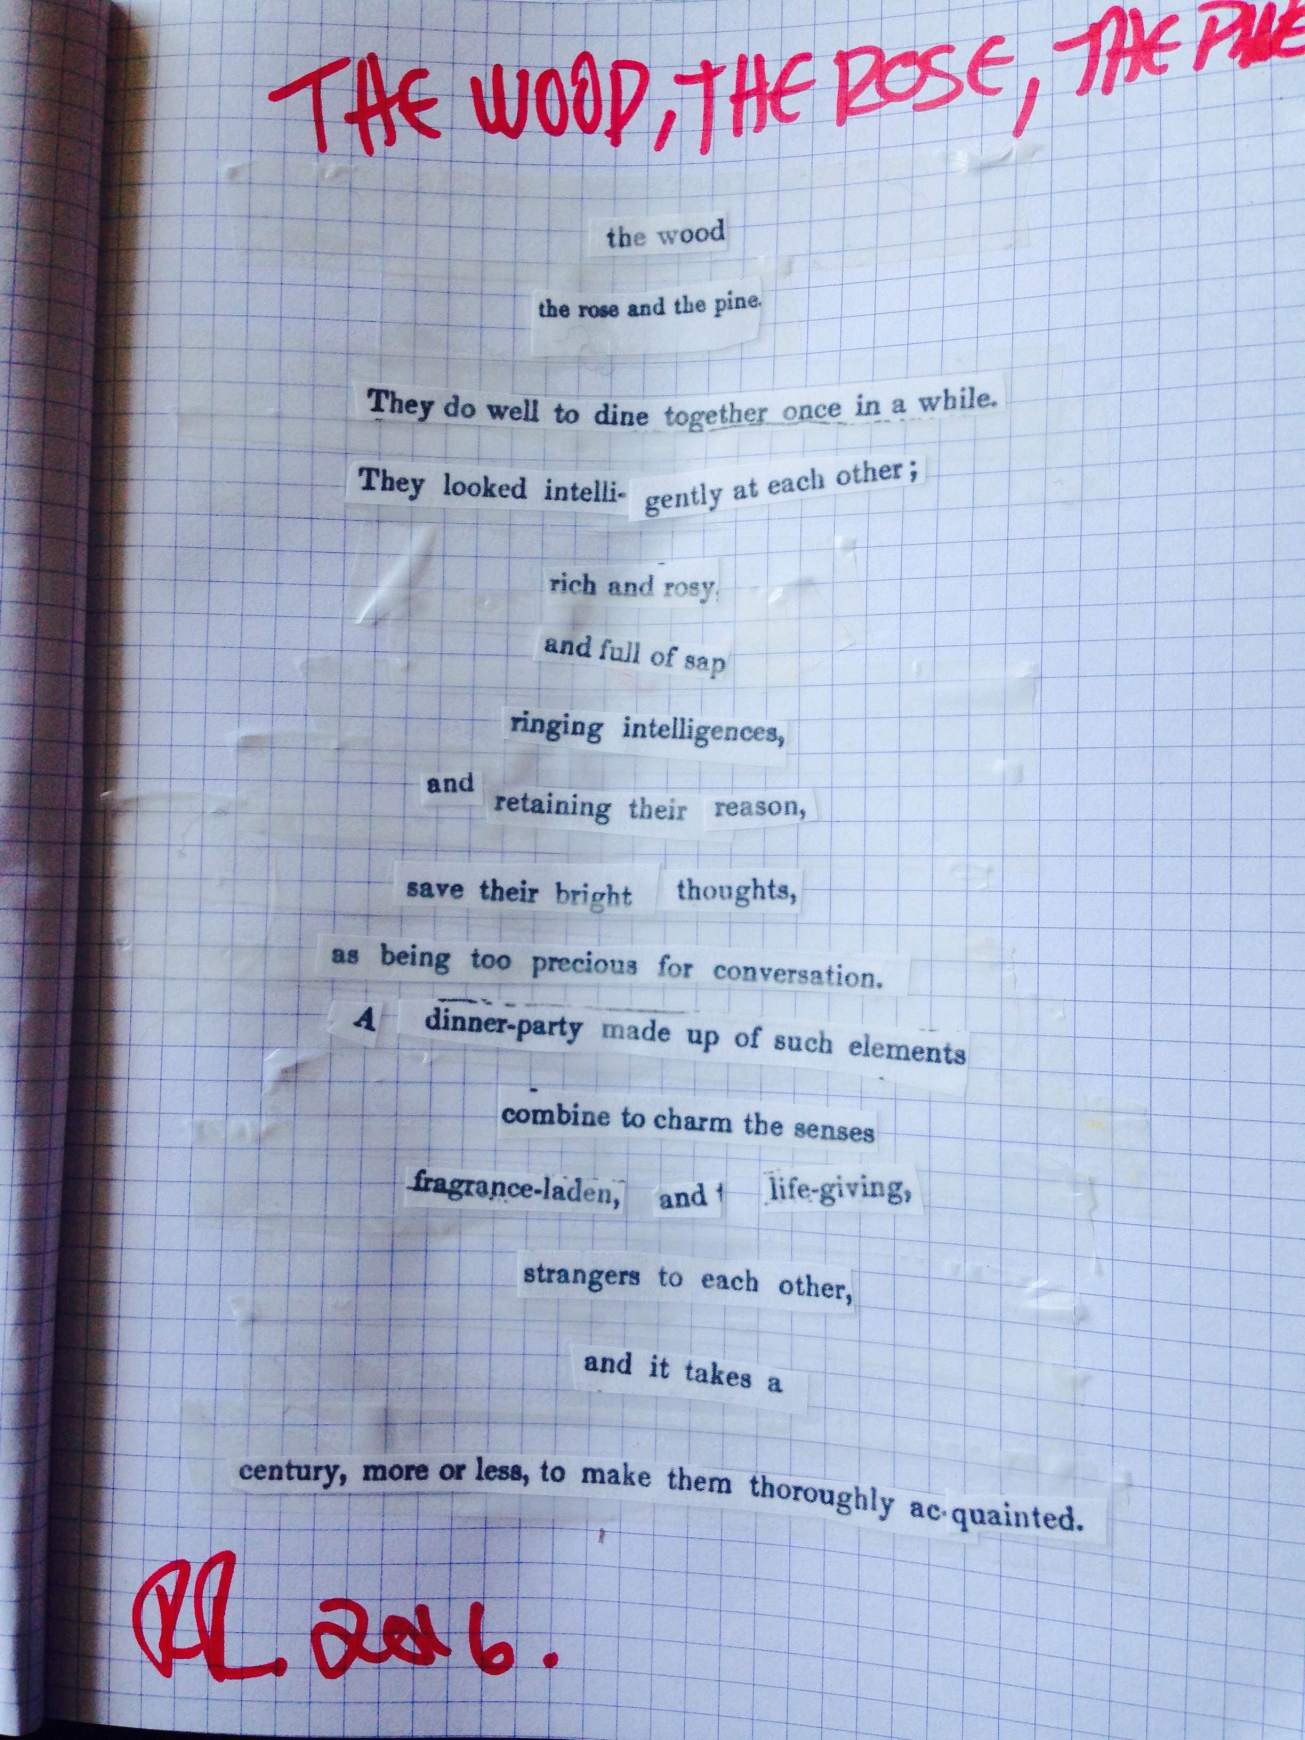 THE WOOD, THE ROSE, THE PINE
the wood
the rose and the pine.
They do well to dine together once in a while.
They looked intelli- gently at each other;
rich and rosy,
and full of sap
ringing intelligences,
and retaining their reason,
save their bright thoughts,
as being too precious for conversation.
A dinner-party made up of such elements
combine to charm the senses
fragrance-laden, and life-giving,
strangers to each other,
and it takes a
century, more or less, to make them thoroughly ac-quainted.
RL. 2016.